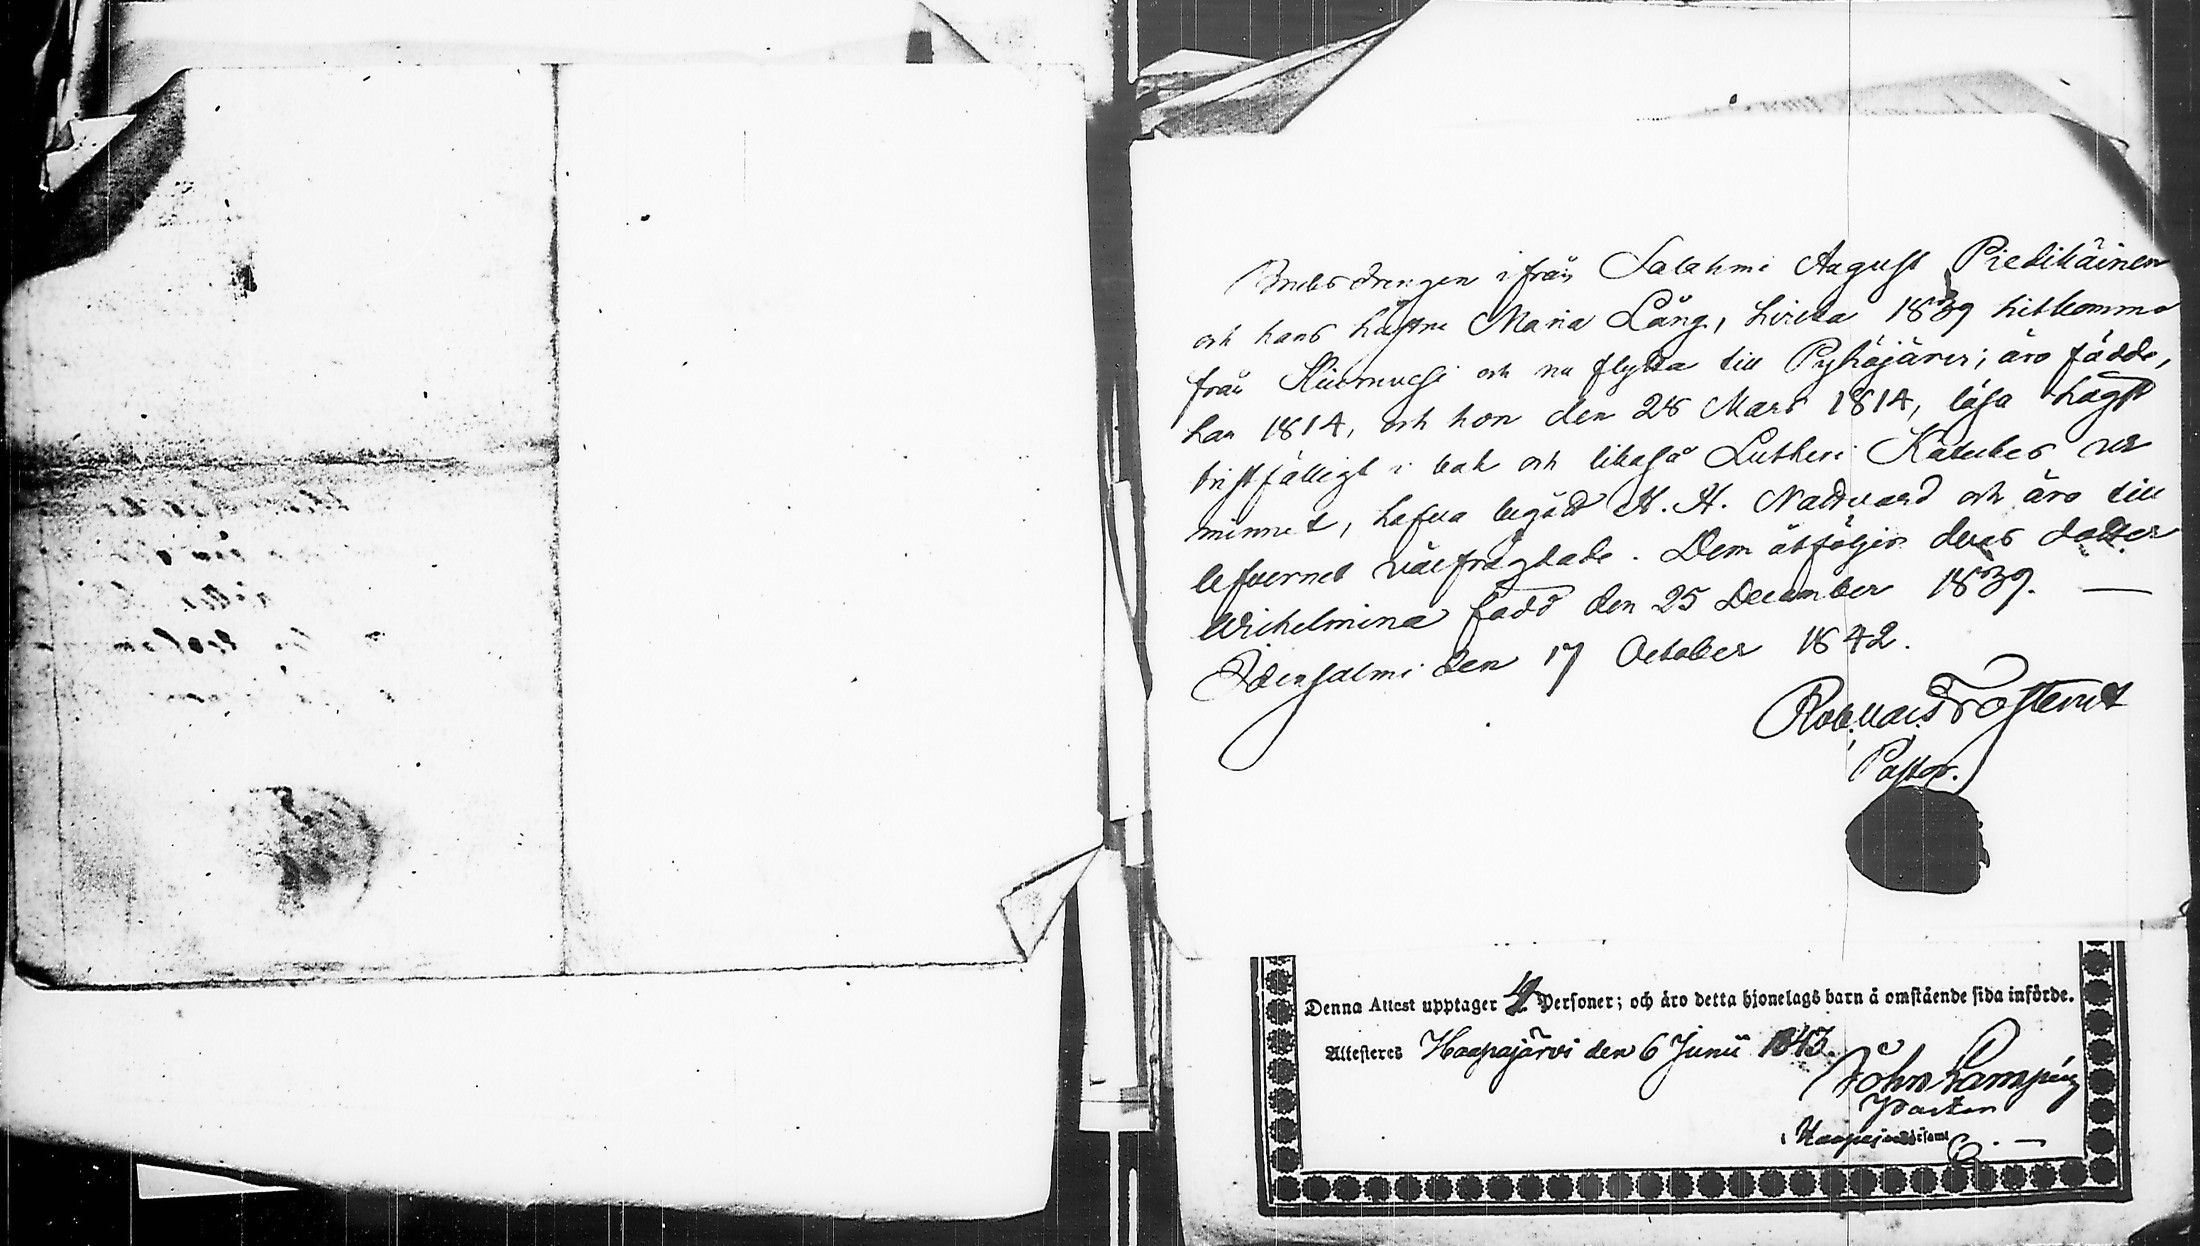 Bruksdrengen ifrån Salahmi August Piedikäinen
och hans hustru Maria Lång, hvilka 1839 hitkomma
från Kiuruvesi och nu flytta till Pyhäjärvi; äro födde,
han 1814, och hon den 28 Mars 1814, läsa högst
bristfälligt i bok och likaså Lutheri Kateches ur
minnet, hafva begådt H. H. Nattvard och äro till
lefvernet välfrägdade. Dem åtföljer deras dotter
Wilhelmina född den 25 December 1839. —
Idensalmi den 17 October 1842.
Rob. Vald. Frosterus
Pastor.
Denna Attest upptager 4 Personer; och äro detta hjonelags barn å omstående sida införde.
Attesteres Haapajärvi den 6 Junii 1843.
Pastor
i Haapajärvi